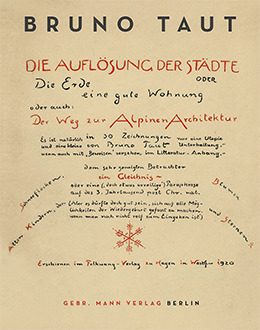 BRUNO TAUT
DIE AUFLÖSUNG DER STÄDTE
ODER
Die Erde
eine gute Wohnung
oder auch:
Der Weg zur Alpinen Architektur
Es ist natürlich in 30 Zeichnungen nur eine Utopie
und eine kleine von Bruno Taut Unterhaltung.-
wenn auch mit „Beweisen" versehen im Litteratur-Anhang.-
dem sehr geneigten Betrachter
ein Gleichnis-
oder eine (, doch etwas voreilige) Paraphrase
auf das 3. Jahrtausend post Chr. nat.
(Aber es dürfte doch gut sein, sich auf alle Mög-
lichkeiten der Wiedergeburt gefasst zu machen,
wenn man noch nicht reif zum Eingehen ist)
Allen Kindern, den
Blumen
und Sternen
Erschienen im Folkwang-Verlag zu Hagen im Westf. 1920
GEBR. MANN VERLAG BERLIN